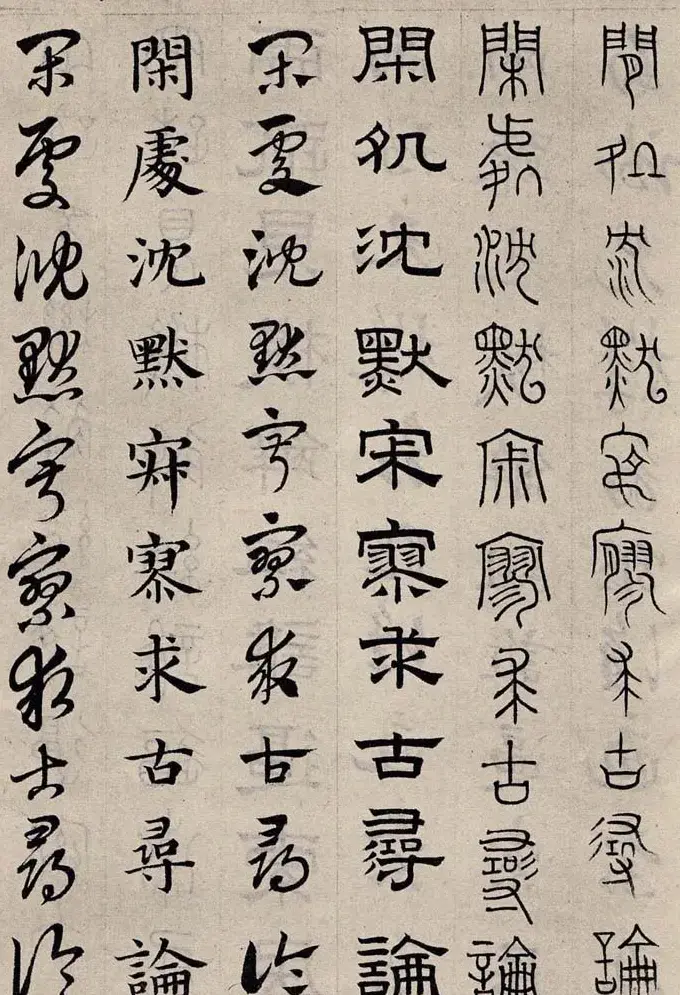 閒処沈默寂寥求古尋論
閑處沈默寂寥求古尋論
閑処沈默寂寥求古尋論
閑處沈默寂寥求古尋論
閑處沈默寂寥求古尋論
閑處沈默寂寥求古尋論